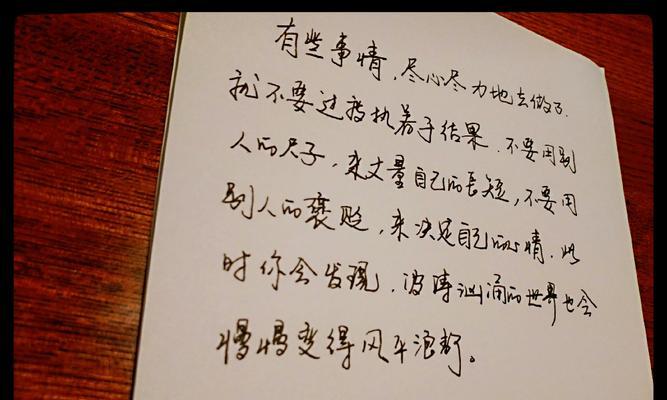 有些事情,尽心尽力地去做了.
就不要过度执着于结果.不要用别
人的尺子,来丈量自己的长短,不要用
别人的褒贬,来决定自己的心情.此
时你会发现,波涛汹涌的世界也会
慢慢变得风平浪静。